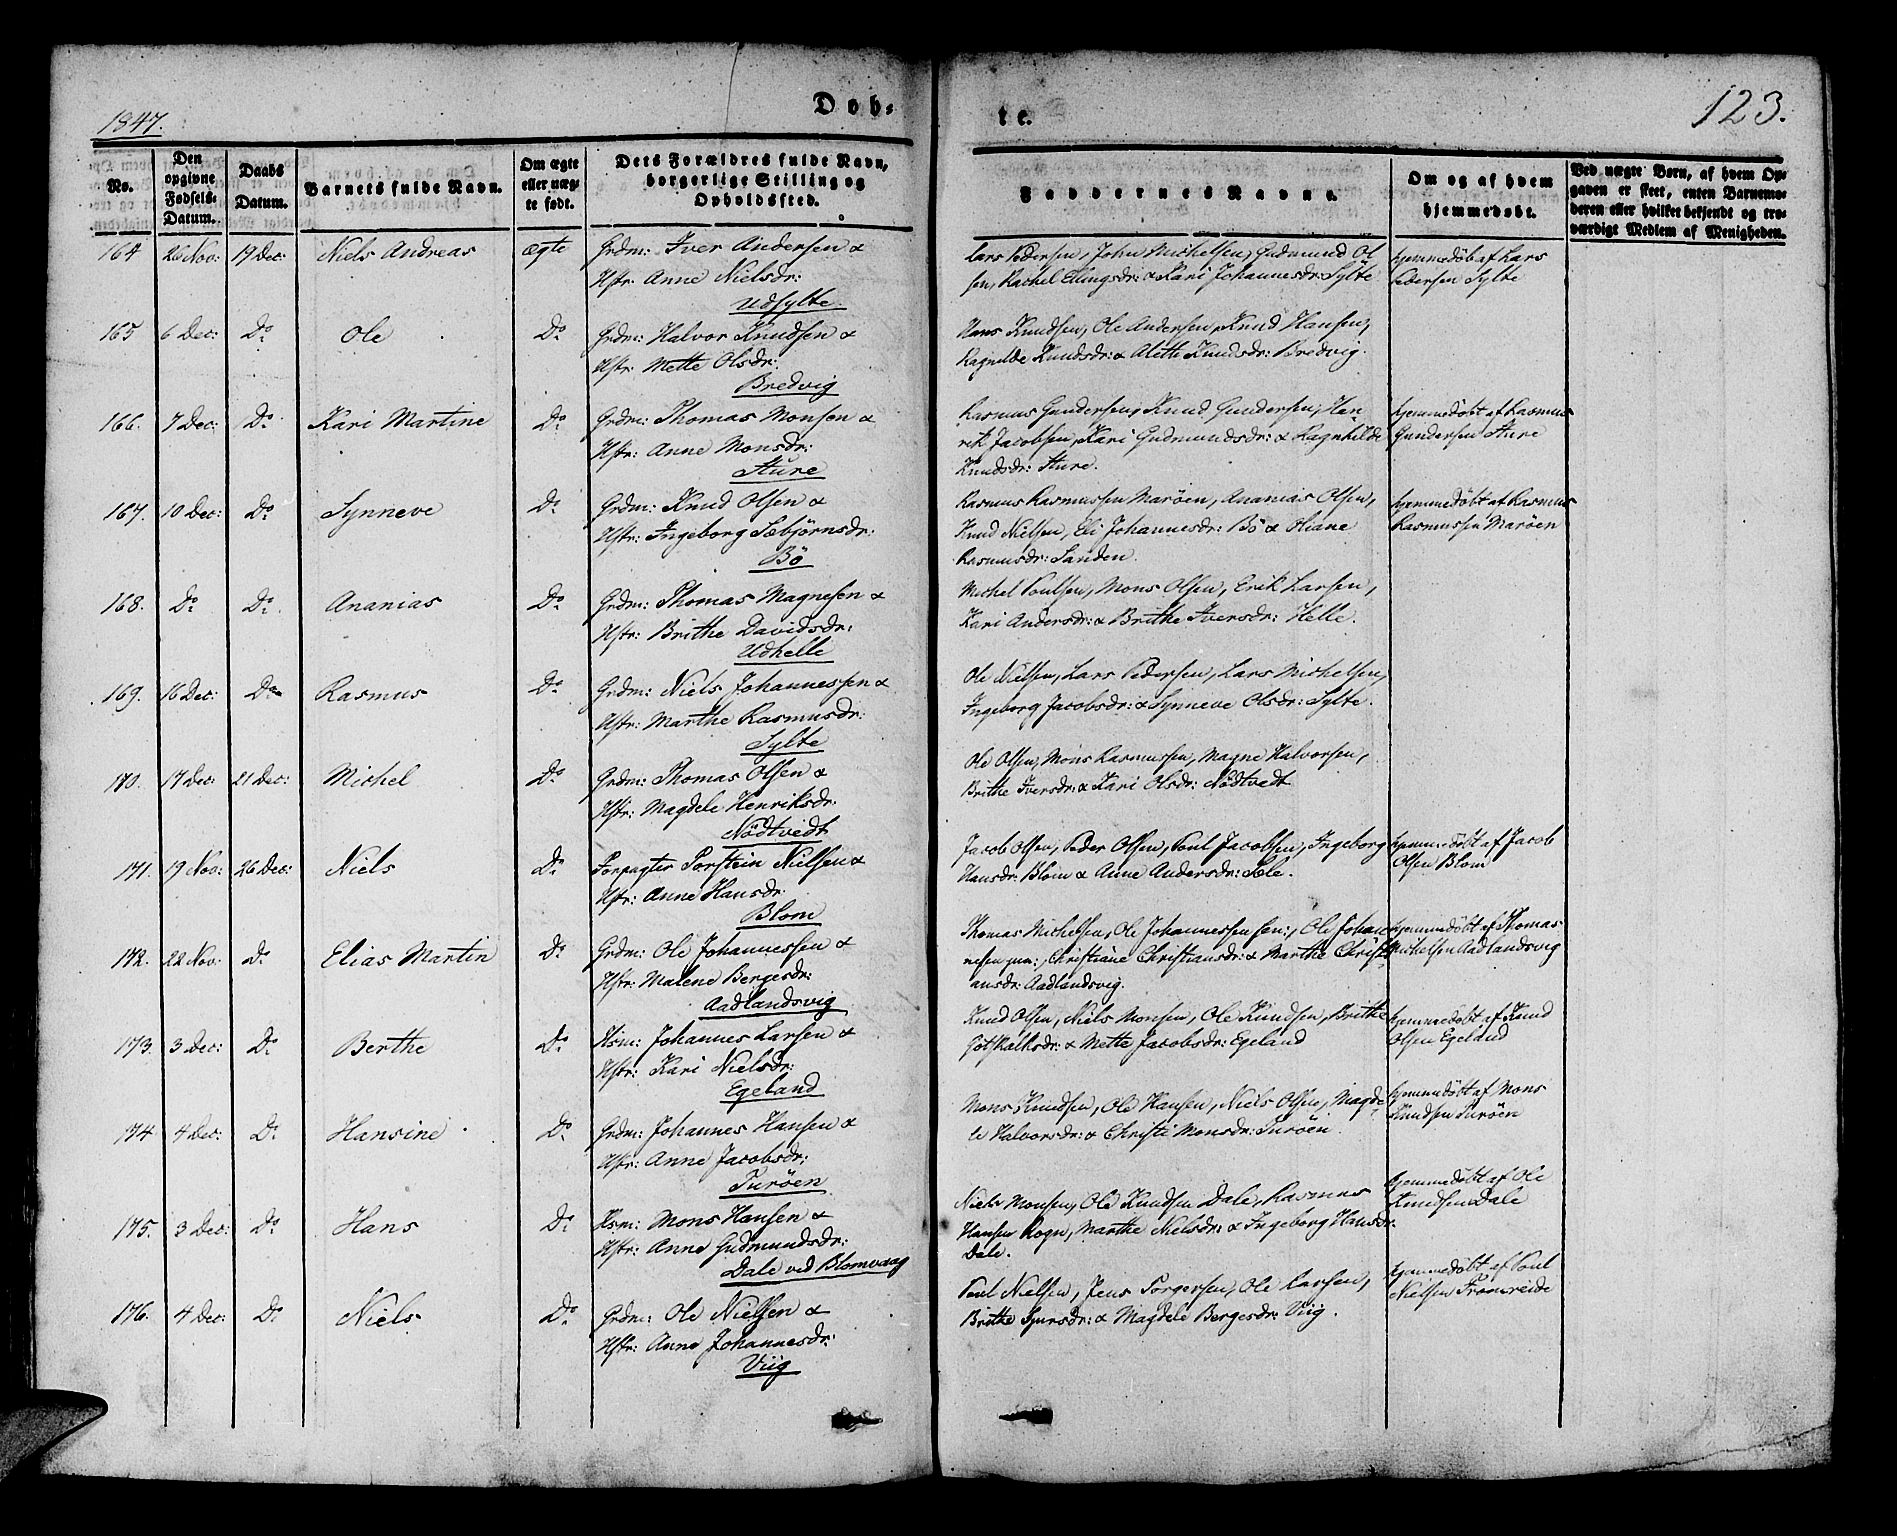 1847.
Døb-
te.
123.
No.
Den opgivne Fødsels-Datum.
Daabs Datum.
Barnets fulde Navn.
Om ægte eller uægte født.
Dets Forældres fulde Navn, borgerlige Stilling og Opholdssted.
Faddernes Navne.
Om og af hvem hjemmedøbt.
Ved uægte Børn, af hvem Opgaven er skeet, enten Barnemoderen eller hvilket bekjendt og troværdigt Medlem af Menigheden.
164 26 Nov: 19 Dec: Niels Andreas ægte Grdm: Iver Andersen &
Hstr: Anne Nielsdr:
Udsylte.
Lars Pedersen, John Michelsen, Gudmund Ol
sen, Rachel Ellingsdr: & Kari Johannesdr: Sylte
hjemmedøbt af Lars
Pedersen Sylte
165 6 Dec: Do Ole Do Grdm: Halvor Knudsen &
Hstr: Mette Olsdr:
Bredvig
Hans Knudsen, Ole Andersen, Knud Hansen,
Ragnilde Knudsdr: & Alethe Knudsdr: Bredvig.
166. 7 Dec: Do Kari Martine Do Grdm: Thomas Monsen &
Hstr: Anne Monsdr:
Sture
Rasmus Gundersen, Knud Gundersen, Hen-
rik Jacobsen, Kari Gudmundsdr: & Ragnhilde
Knudsdr: Sture.
hjemmedøbt af Rasmus
Gundersen Sture
167. 10 Dec: Do Synneve Do Grdm: Knud Olsen &
Hstr: Ingeborg Sæbjörnsdr:
Bö
Rasmus Rasmussen Maröen, Ananias Olsen,
Knud Nielsen, Eli Johannesdr: Bö & Oliane
Rasmusdr: Sanden.
hjemmedøbt af Rasmus
Rasmussen Maröen
168. Do Do Ananias Do Grdm: Thomas Magnesen &
Hstr: Brithe Davidsdr:
Udhelle
Michel Poulsen, Mons Olsen, Erik Larsen,
Kari Andersdr: & Brithe Iversdr: Helle.
169. 16 Dec: Do Rasmus Do Grdm: Niels Johannessen &
Hstr: Marthe Rasmusdr:
Sylte
Ole Nielsen, Lars Pedersen, Lars Michelsen,
Ingeborg Jacobsdr: & Synneve Olsdr: Sylte.
170. 17 Dec: 21 Dec: Michel Do Grdm: Thomas Olsen &
Hstr: Magdele Henriksdr:
Nödtvedt
Ole Olsen, Mons Rasmussen, Magne Halvorsen,
Brithe Iversdr: & Kari Olsdr: Nödtvedt
171. 19 Nov: 26 Dec: Niels Do Forpagter Torstein Nielsen &
Hstr: Anne Hansdr:
Blom
Jacob Olsen, Peder Olsen, Poul Jacobsen, Ingeborg
Hansdr: Blom & Anne Andersdr: Sæle.
hjemmedöbt af Jacob
Olsen Blom
172. 22 Nov: Do Elias Martin Do Grdm: Ole Johannessen &
Hstr: Malene Bergesdr:
Aadlandsvig
Thomas Michelsen, Ole Johannessen sen:, Ole Johan
nesen jun:, Christiane Christiansdr: & Marthe Christ
ansdr: Aadlandsvig.
hjemmedöbt af Thomas
Michelsen Aadlandsvig
173. 3 Dec: Do Berthe Do Hsm: Johannes Larsen &
Hstr: Kari Nielsdr:
Egeland
Knud Olsen, Niels Monsen, Ole Knudsen, Brithe
Gotskalksdr: & Mette Jacobsdr: Egeland
hjemmedöbt af Knud
Olsen Egeland
174 4 Dec: Do Hansine Do Grdm: Johannes Hansen &
Hstr: Anne Jacobsdr:
Turöen
Mons Knudsen, Ole Hansen, Niels Olsen, Magde
le Halvorsdr: & Christi Monsdr: Turöen.
hjemmedöbt af Mons
Knudsen Turöen
175. 3 Dec: Do Hans Do Hsm: Mons Hansen &
Hstr: Anne Gudmundsdr:
Dale ved Blomvaag
Niels Monsen, Ole Knudsen Dale, Rasmus
Hansen Rogn, Marthe Nielsdr: & Ingeborg Hansdr:
Dale.
hjemmedöbt af Ole
Knudsen Dale
176. 4 Dec: Do Niels Do Grdm: Ole Nielsen &
Hstr: Anne Johannesdr:
Viig
Poul Nielsen, Jens Torgersen, Ole Larsen,
Brithe Sjursdr: & Magdele Bergesdr: Viig.
hjemmedöbt af Poul
Nielsen Fromreide